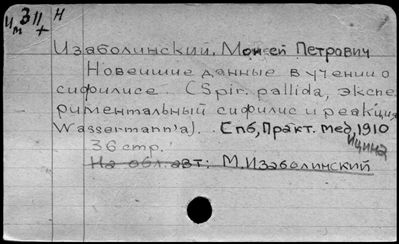 И 311 Н
м +
Изаболинский, Моисей Петрович
Новейшие данные в учении о
сифилисе. (Spir. pallida, экспе
риментальный сифилис и реакция
Wassermann'a). Спб, Практ. мед, 1910
ицина
36 стр.
На обл. авт: М. Изаболинский